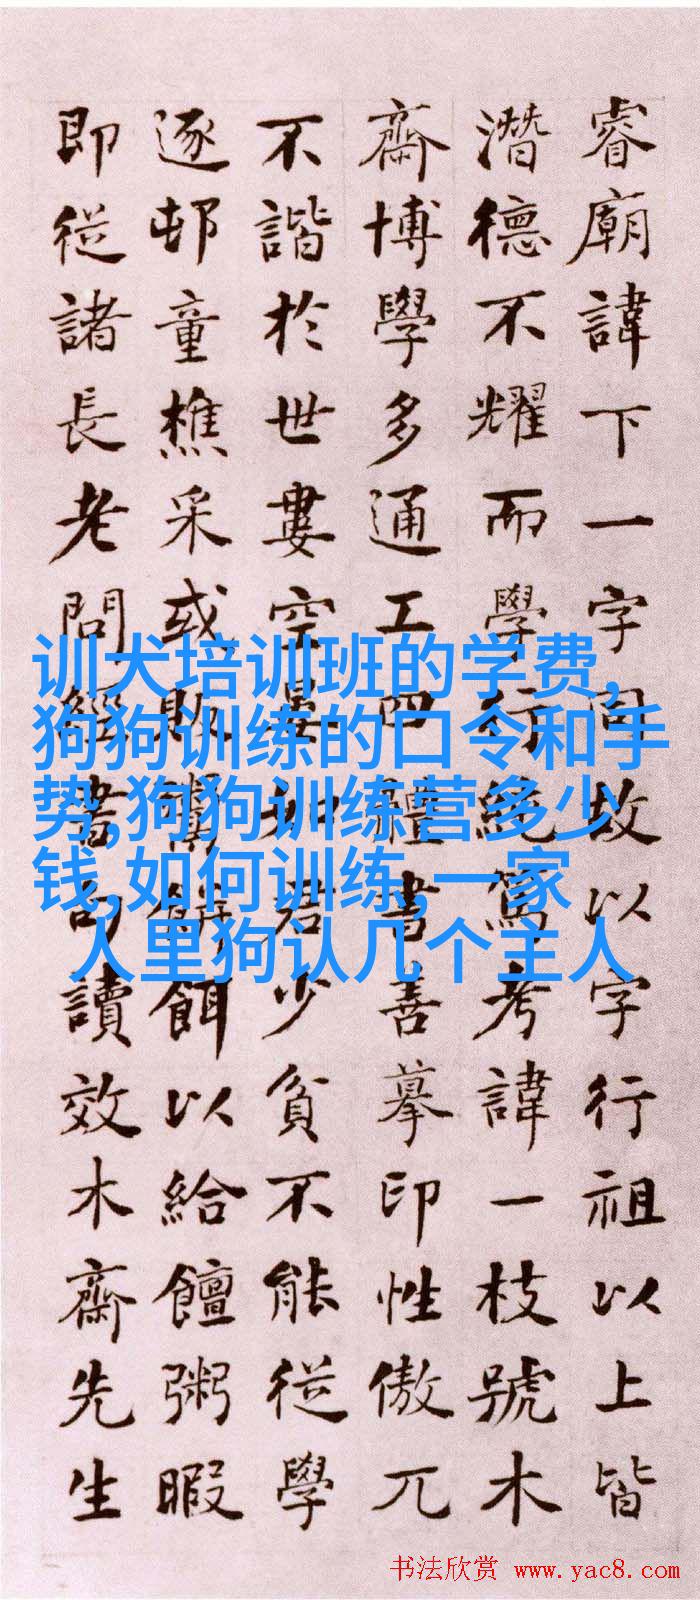 睿廟諱下一字同故以字行祖以上皆
潛德不耀而學行純篤考諱一枝號木
齋博學多通工四體書善摹印性傲兀
不諧於世婁空晏如君少貧不能從學
逐邨童樵采或販鬻餅餌以給饘粥暇
即從諸長老問經書句讀效木齋先生
训犬培训班的学费,
狗狗训练的口令和手
势,狗狗训练营多少
钱,如何训练,一家
人里狗认几个主人
书法欣赏 www.yac8.com